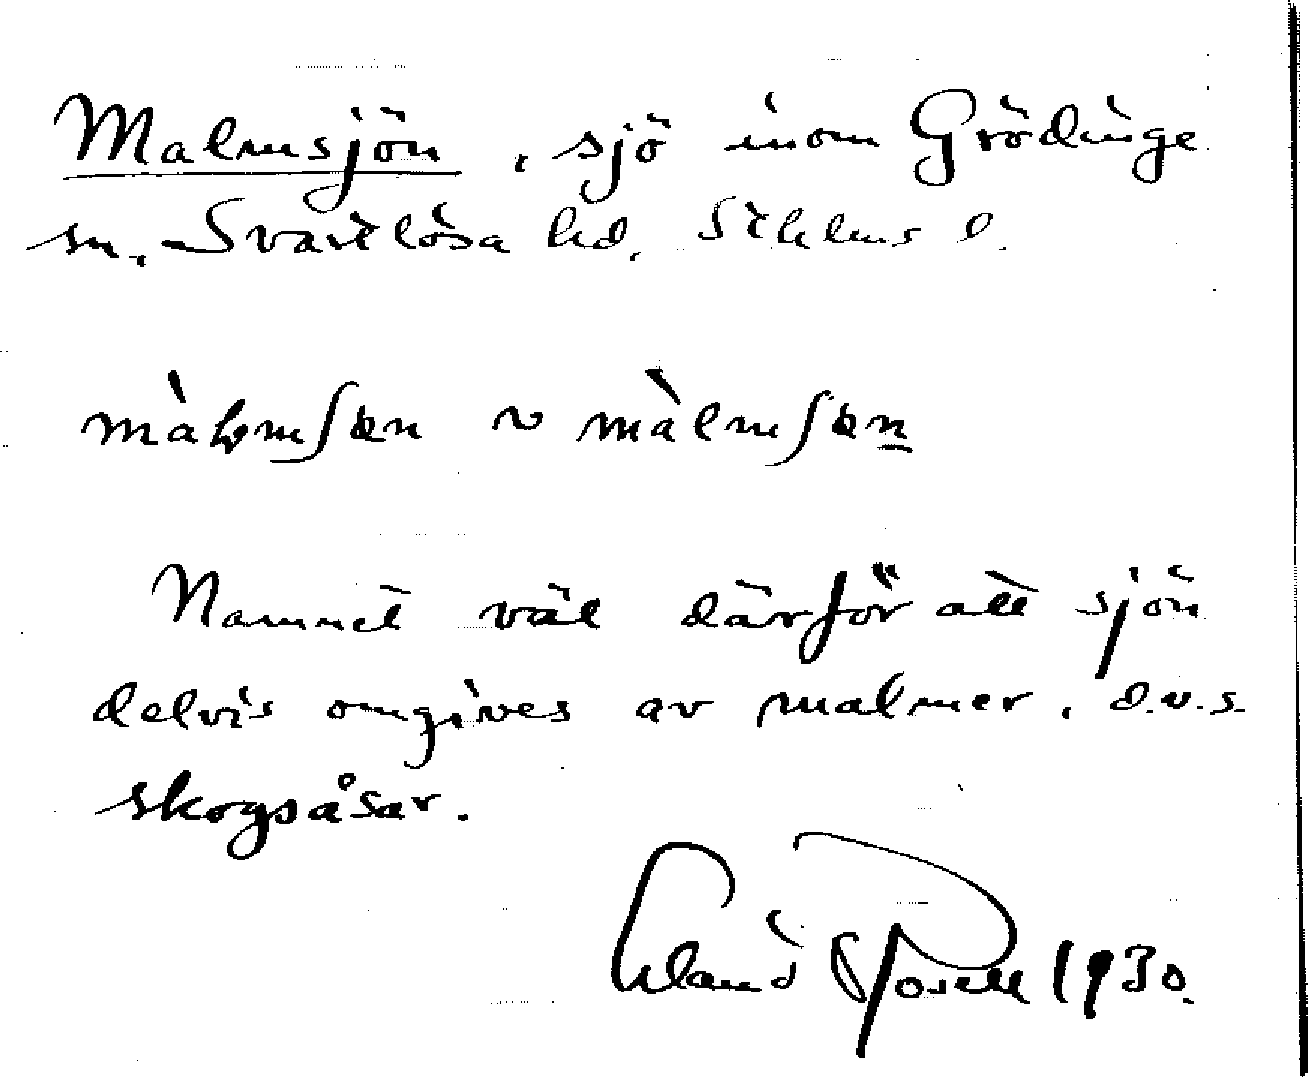 Malmsjön, sjö inom Grödinge
sn, Svartlösa hd, Sthlms l.
Namnet väl därför att sjön
delvis omgives av malmer, d.v.s.
skogsåsar.
Erland Rosell 1930.